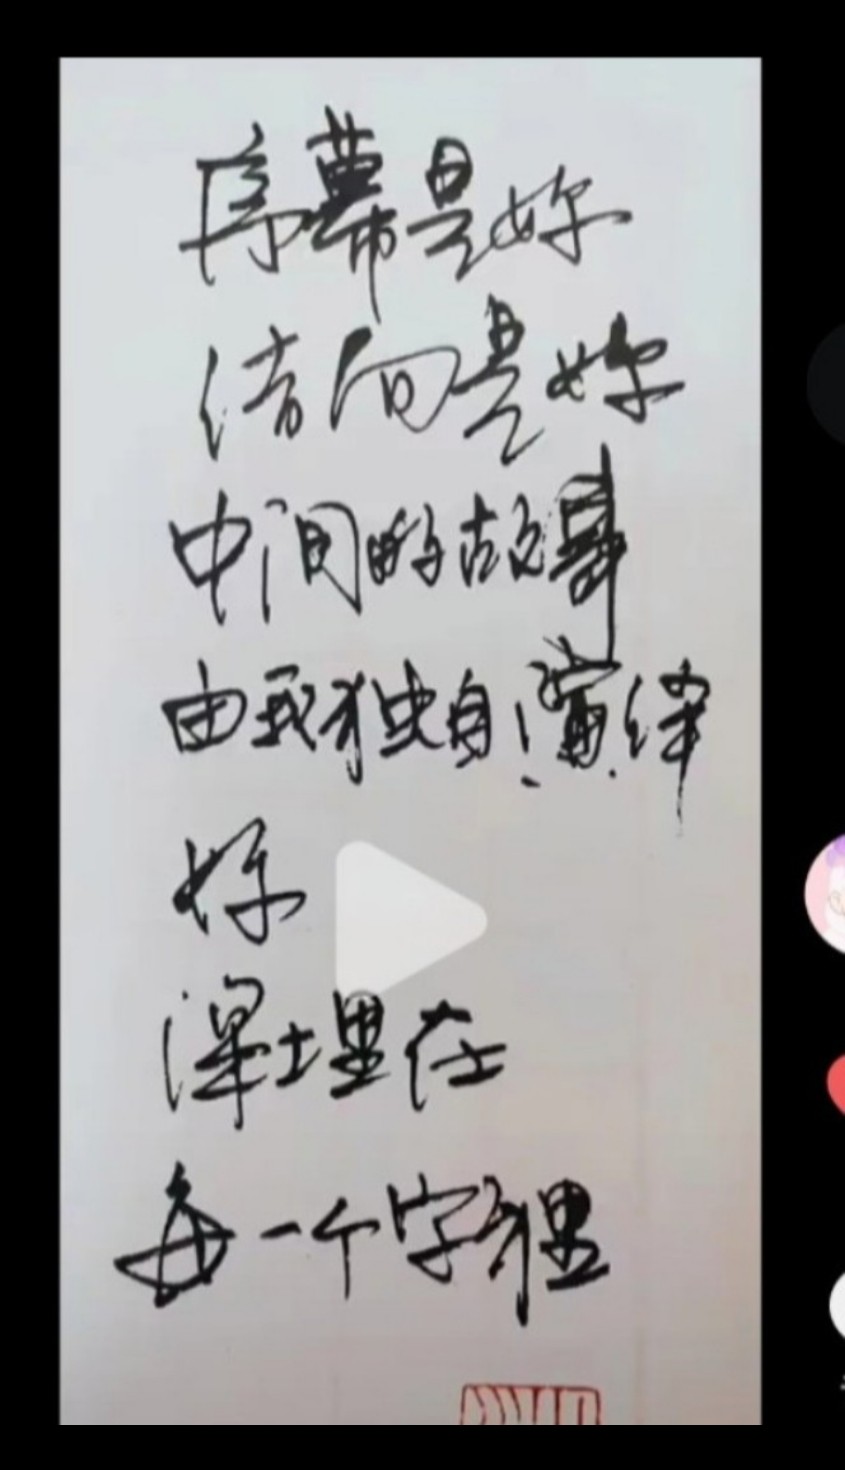 序幕是妳
结局是妳
中间的故事
由我独自演绎
妳
深埋在
每一个字裡